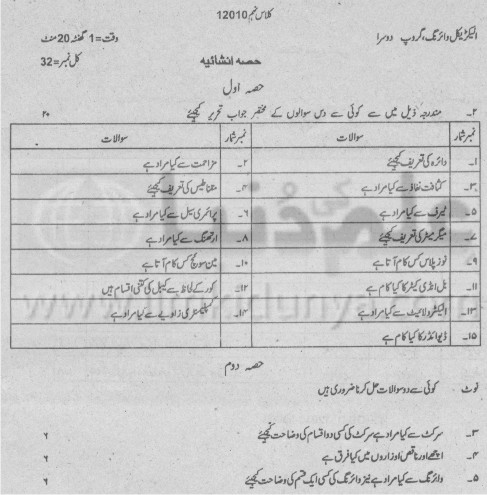 کلاس نہم 12010
الیکٹریکل وائرنگ، گروپ دوسرا
وقت=1 گھنٹہ 20 منٹ
حصہ انشائیہ
کل نمبر=32
حصہ اول
۲۔ مندرجہ ذیل میں سے کوئی سے دس سوالوں کے مختصر جواب تحریر کیجئے ۲۰
نمبر شمار سوالات نمبر شمار سوالات
۱۔ دائرہ کی تعریف کیجئے ۲۔ مزاحمت سے کیا مراد ہے
۳۔ کثافت نفاذ سے کیا مراد ہے ۴۔ مقناطیس کی تعریف کیجئے
۵۔ ٹیرف سے کیا مراد ہے ۶۔ پرائمری سیل سے کیا مراد ہے
۷۔ میگر میٹر کی تعریف کیجئے ۸۔ ارتھنگ سے کیا مراد ہے
۹۔ نوز پلاس کس کام آتا ہے ۱۰۔ مین سوئچ کس کام آتا ہے
۱۱۔ بل انڈی کیٹر کا کیا کام ہے ۱۲۔ کور کے لحاظ سے کیبل کی کتنی اقسام ہیں
۱۳۔ الیکٹرولائیٹ سے کیا مراد ہے ۱۴۔ کمپلیمنٹری زاویے سے کیا مراد ہے
۱۵۔ ڈیوائڈر کا کیا کام ہے
علم کی دنیا
www.ilmkidunya.com
حصہ دوم
نوٹ کوئی سے دو سوالات حل کرنا ضروری ہیں
۳۔ سرکٹ سے کیا مراد ہے سرکٹ کی کسی دو اقسام کی وضاحت کیجئے ۶
۴۔ اچھے اور ناقص اوزاروں میں کیا فرق ہے ۶
۵۔ وائرنگ سے کیا مراد ہے نیز وائرنگ کی کسی ایک قسم کی وضاحت کیجئے ۶